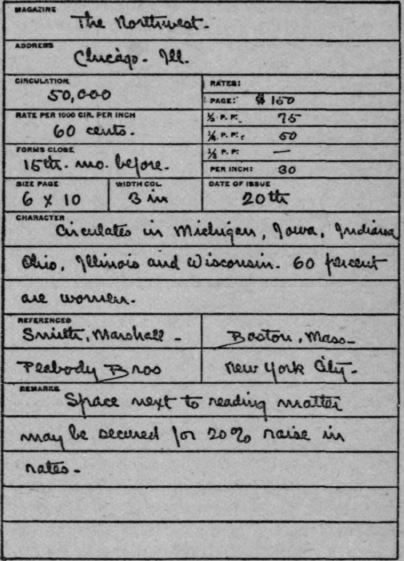 MAGAZINE
The Northwest.
ADDRESS
Chicago. Ill.
CIRCULATION
50,000
RATES:
PAGE: $ 150
RATE PER 1000 CIR. PER INCH
60 cents.
½ P. P: 75
¼ P. P: 50
FORMS CLOSE
15th. mo. before.
⅛ P. P: —
PER INCH: 30
SIZE PAGE
6 x 10
WIDTH COL.
3 in
DATE OF ISSUE
20th
CHARACTER
Circulates in Michigan, Iowa, Indiana
Ohio, Illinois and Wisconsin. 60 percent
are women.
REFERENCES
Smith, Marshall - Boston, Mass-
Peabody Bros New York City-
REMARKS
Space next to reading matter
may be secured for 20% raise in
rates-